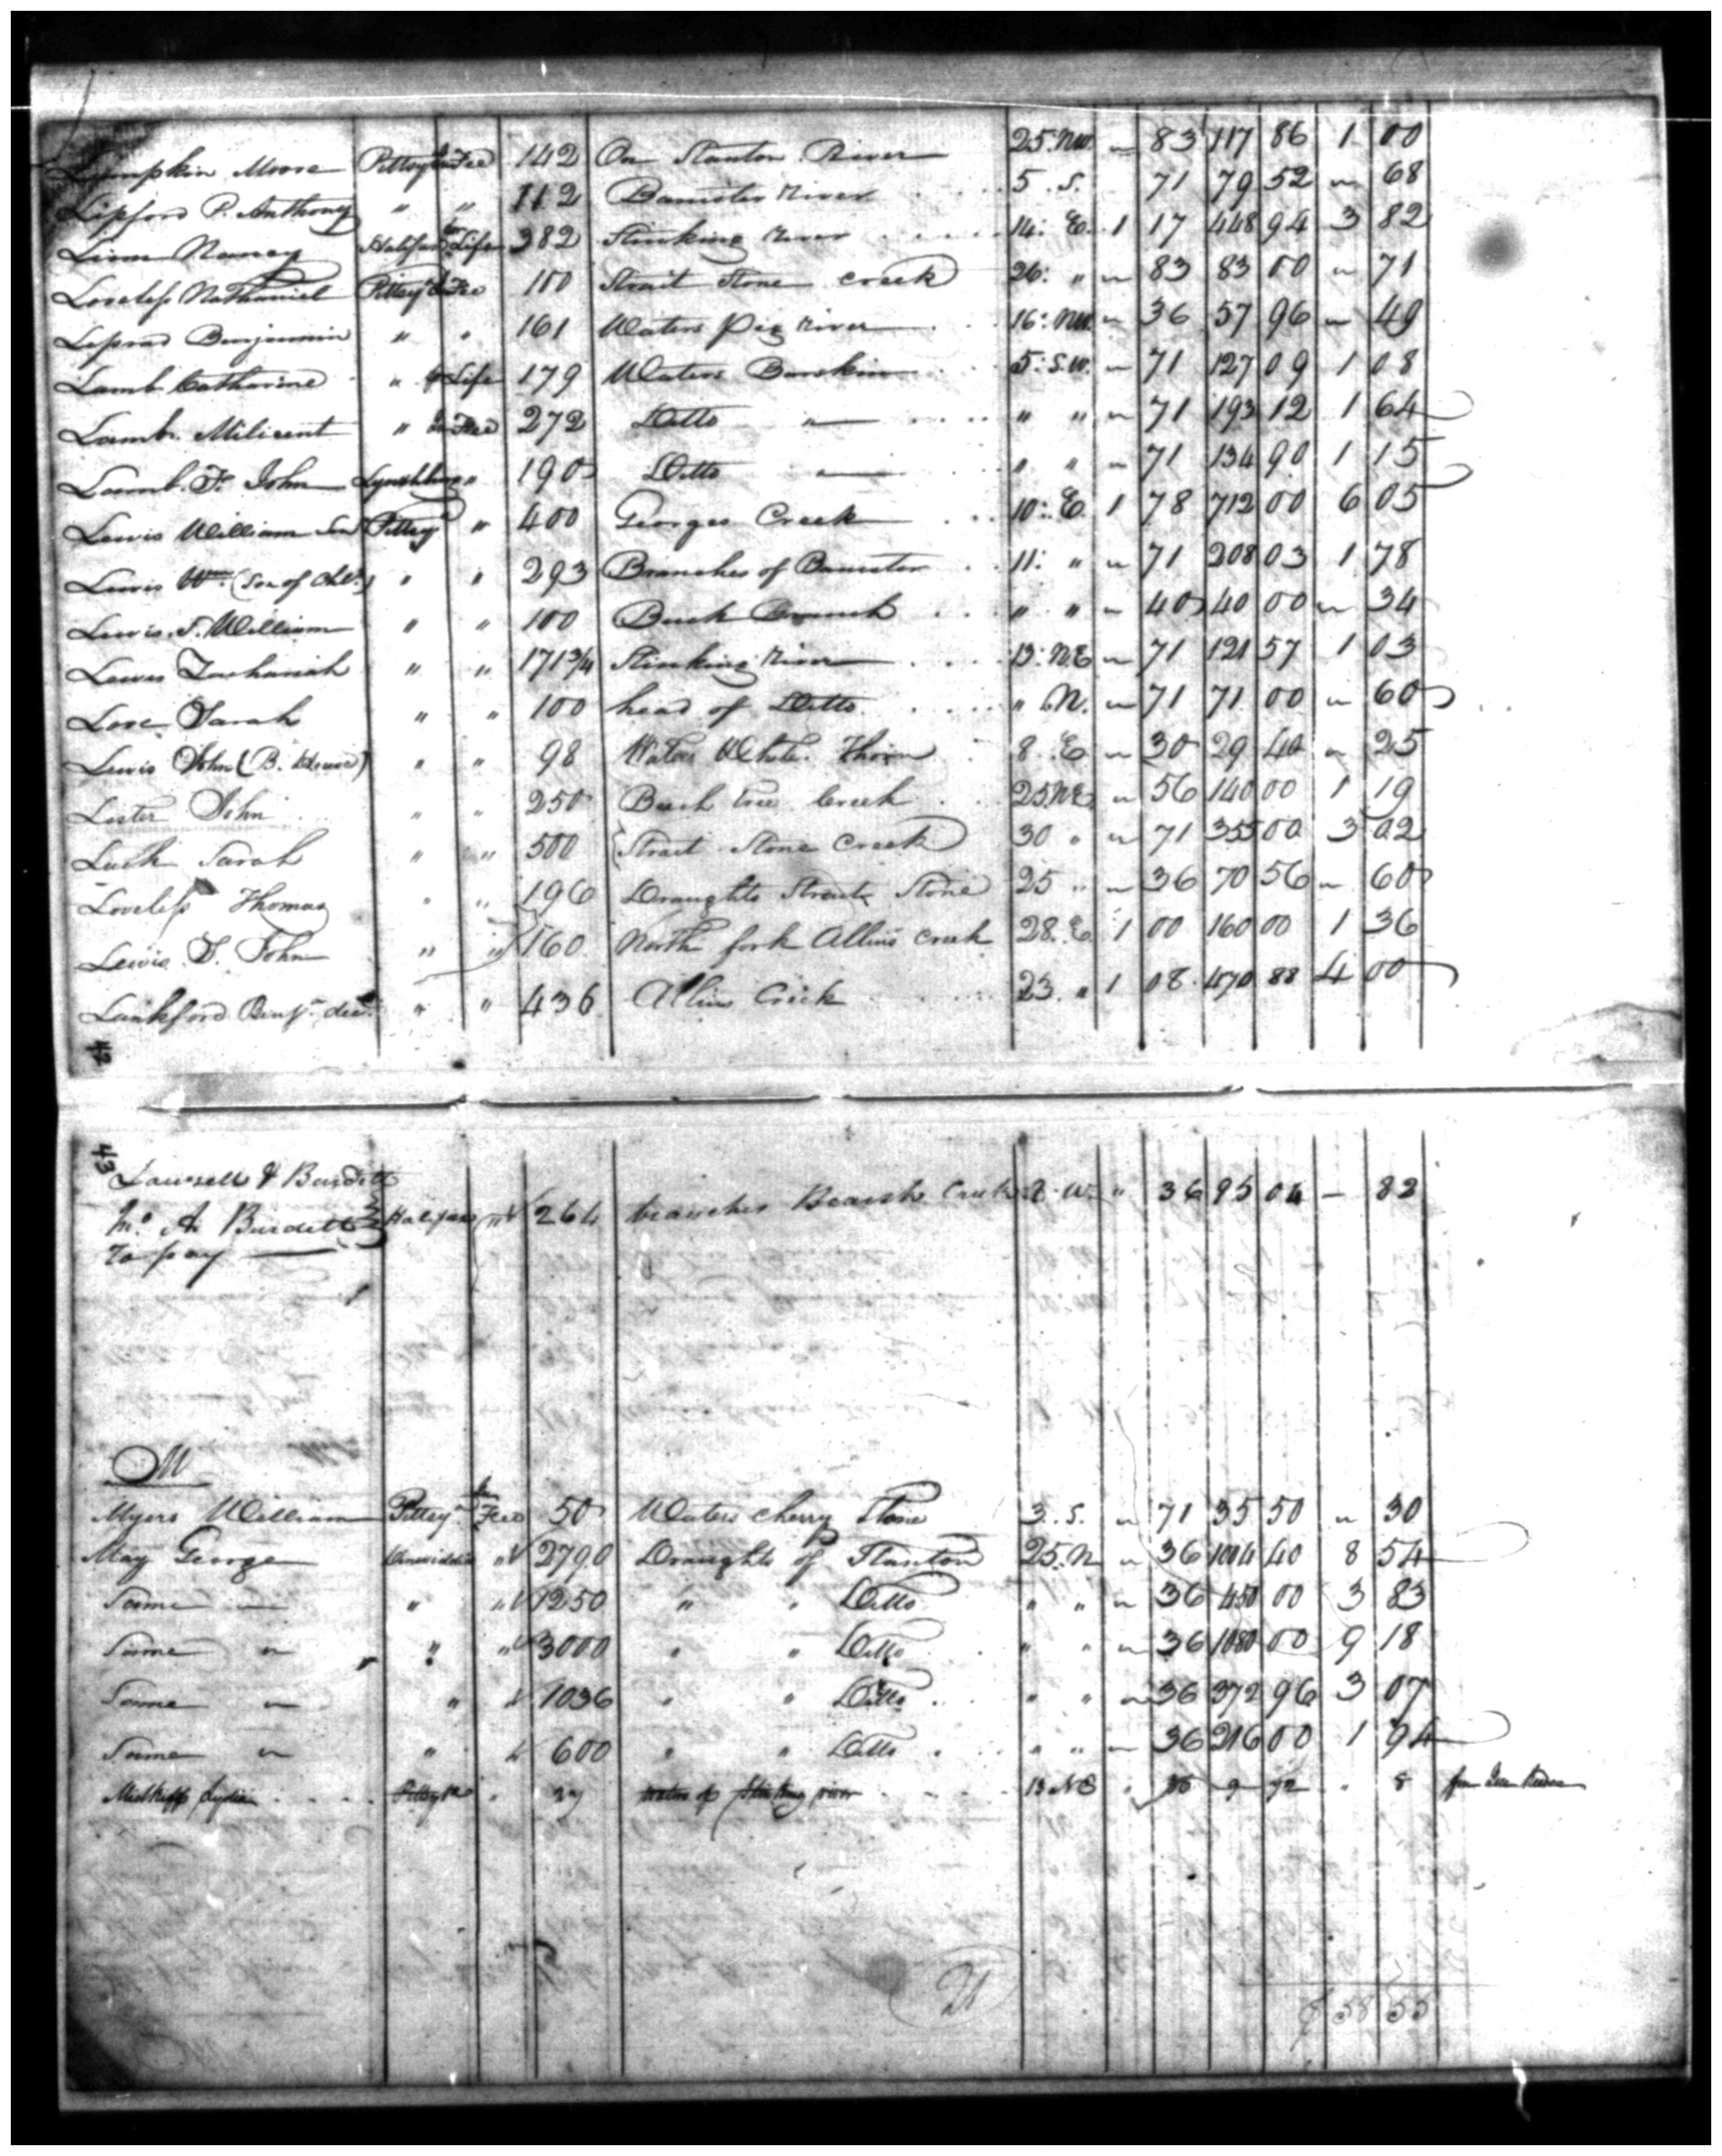 Lumpkin Moore Pittsyl In Fee 142 On Stanton River 25 NW. " 83 117 86 1 00
Lipford P. Anthony " " 112 Banister River 5. S. 71 79 52 " 68
Linn Nancy Halifax for Life 382 Stinking River 14: E. 1 17 448 94 3 82
Loveless Nathaniel Pittsyl In Fee 100 Strait Stone Creek 26: " " 83 83 00 " 71
Benjamin " " 161 Waters Pig River 16: NW " 36 57 96 " 49
Lamb Catharine " for Life 179 Waters Barskin 5: S.W. " 71 127 09 1 08
Lamb. Milicent " In Fee 272 Ditto " " " " 71 193 12 1 64
Lamb. F. John Lynchburg " 190 Ditto " " " 71 134 90 1 15
Lewis William Senr Pittsyl " 400 Georges Creek 10: E. 1 78 712 00 6 05
Lewis Wm. (Son of Chs.) " " 293 Branches of Banister 11: " " 71 208 03 1 78
Lewis. S. William " " 100 Buck Branch " " " 40 40 00 " 34
Lewis Zachariah " " 171 3/4 Stinking River 13: N.E " 71 121 57 1 03
Love Sarah " " 100 head of Ditto " N. " 71 71 00 " 60
Lewis John (B. House) " " 98 Waters White Thorn 8. E " 30 29 40 " 25
Lester John " " 250 Beech tree Creek 25 N.E " 56 140 00 1 19
Luck Sarah " " 500 Strait Stone Creek 30 " " 71 355 00 3 02
Loveless Thomas " " 196 Draughts Strait Stone 25 " " 36 70 56 " 60
Lewis. S. John " " 160 North fork Allins Creek 28. E. 1 00 160 00 1 36
Lankford Benj. decd. " " 436 Allins Creek 23. " 1 08 470 88 4 00
42
43
& Burdett
A Burdett Halifax " 264 branches Bearskin Creek W. " 36 95 04 — 82
to pay
M
Myers William Pittsyl In Fee 50 Waters Cherry Stone 3. S. " 71 35 50 " 30
May George Dinwiddie " 2790 Draughts of Stanton 25. N " 36 1004 40 8 54
Same " " " 1250 " " Ditto " " " 36 450 00 3 83
Same " " " 3000 " " Ditto " " " 36 1080 00 9 18
Same " " " 1036 " " Ditto " " " 36 372 96 3 07
Same " " " 600 " " Ditto " " " 36 216 00 1 94
Midkiff Lydia Pittsyl " 27 waters of Stinking river 13 NE " 36 9 72 " 8
21
$ 58 55